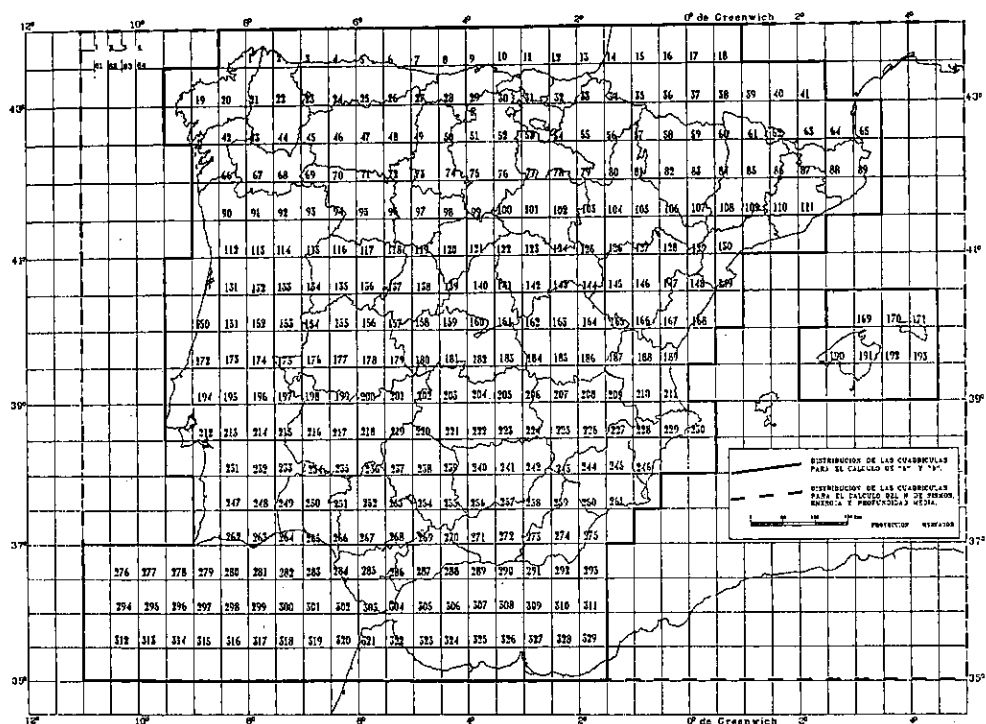 12° 10° 8° 6° 4° 2° 0° de Greenwich 2° 4°
1 2 3 4 5 6 7 8 9 10 11 12 13 14 15 16 17 18
61 62 63 64
43° 19 20 21 22 23 24 25 26 27 28 29 30 31 32 33 34 35 36 37 38 39 40 41 43°
42 43 44 45 46 47 48 49 50 51 52 53 54 55 56 57 58 59 60 61 62 63 64 65
66 67 68 69 70 71 72 73 74 75 76 77 78 79 80 81 82 83 84 85 86 87 88 89
90 91 92 93 94 95 96 97 98 99 100 101 102 103 104 105 106 107 108 109 110 111
41° 112 113 114 115 116 117 118 119 120 121 122 123 124 125 126 127 128 129 130 41°
131 132 133 134 135 136 137 138 139 140 141 142 143 144 145 146 147 148 149
150 151 152 153 154 155 156 157 158 159 160 161 162 163 164 165 166 167 168 169 170 171
172 173 174 175 176 177 178 179 180 181 182 183 184 185 186 187 188 189 190 191 192 193
39° 194 195 196 197 198 199 200 201 202 203 204 205 206 207 208 209 210 211 39°
212 213 214 215 216 217 218 219 220 221 222 223 224 225 226 227 228 229 230
231 232 233 234 235 236 237 238 239 240 241 242 243 244 245 246
247 248 249 250 251 252 253 254 255 256 257 258 259 260 261
37° 262 263 264 265 266 267 268 269 270 271 272 273 274 275 37°
276 277 278 279 280 281 282 283 284 285 286 287 288 289 290 291 292 293
294 295 296 297 298 299 300 301 302 303 304 305 306 307 308 309 310 311
312 313 314 315 316 317 318 319 320 321 322 323 324 325 326 327 328 329
35° 35°
12° 10° 8° 6° 4° 2° 0° de Greenwich 2° 4°
DISTRIBUCION DE LAS CUADRICULAS
PARA EL CALCULO DE "A" Y "B".
DISTRIBUCION DE LAS CUADRICULAS
PARA EL CALCULO DEL N DE SISMOS,
ENERGIA Y PROFUNDIDAD MEDIA.
PROYECCION MERCATOR